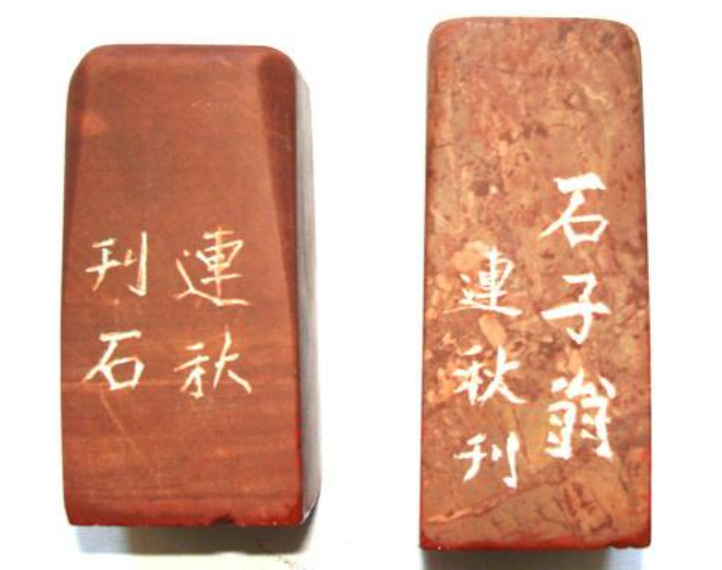 連秋
刊石
石子翁
連秋刊